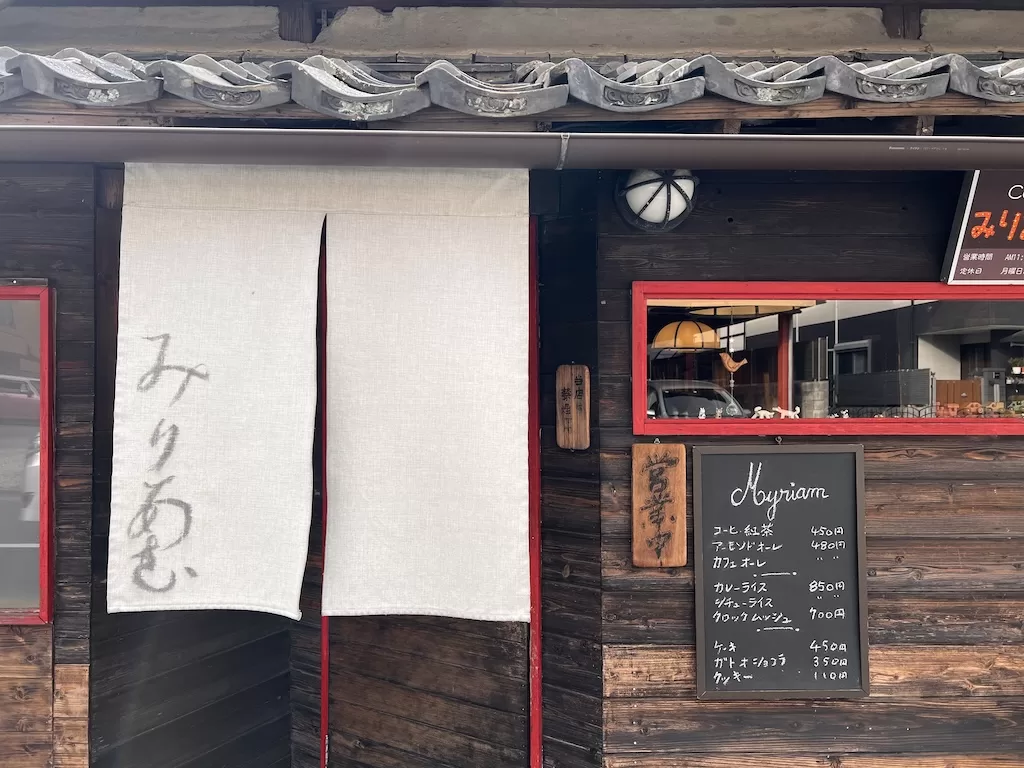 みりあむ
営業中
C
みり
営業時間 AM11:
定休日 月曜日
Myriam
コーヒ・紅茶 450円
アーモンドオーレ 480円
カフェオーレ 〃 〃
カレーライス 850円
シチューライス 〃 〃
クロックムッシュ 700円
ケーキ 450円
ガトオショコラ 350円
クッキー 110円